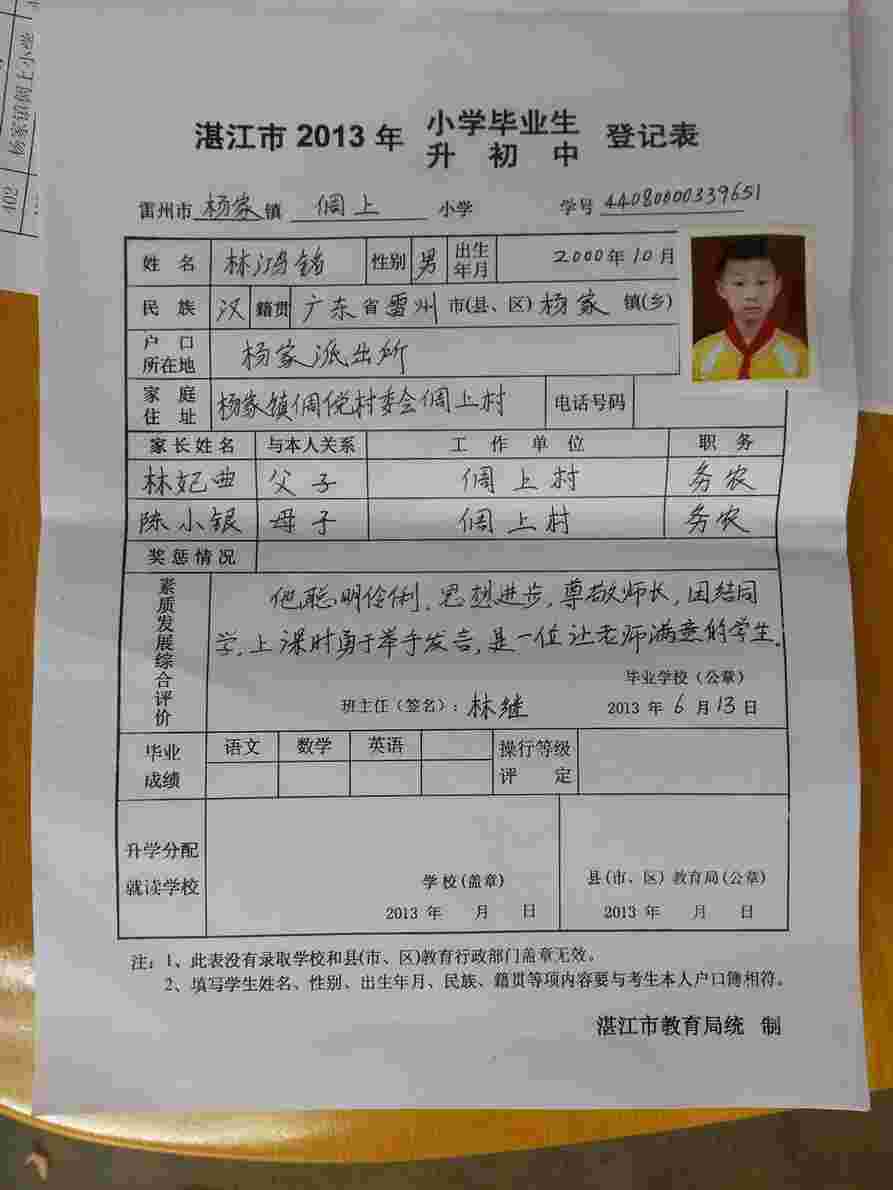 杨家镇倜上小学
402
湛江市 2013 年 小学毕业生 登记表
升 初 中
雷州市 杨家 镇 倜上 小学 学号 44080000339651
姓 名 林鸿锴 性别 男 出生年月 2000年10月
民 族 汉 籍贯 广东省雷州市(县、区)杨家镇(乡)
户 口 所在地 杨家派出所
家 庭 住 址 杨家镇倜侻村委会倜上村 电话号码
家长姓名 与本人关系 工 作 单 位 职 务
林妃典 父子 倜上村 务农
陈小银 母子 倜上村 务农
奖惩情况
素质发展综合评价
他聪明伶俐，思想进步，尊敬师长，团结同
学，上课时勇于举手发言，是一位让老师满意的学生。
毕业学校（公章）
班主任（签名）：林继 2013 年 6 月 13 日
毕业成绩 语文 数学 英语 操行等级评 定
升学分配
就读学校
学校(盖章) 县(市、区) 教育局(公章)
2013 年 月 日 2013 年 月 日
注：1、此表没有录取学校和县(市、区)教育行政部门盖章无效。
2、填写学生姓名、性别、出生年月、民族、籍贯等项内容要与考生本人户口簿相符。
湛江市教育局统 制